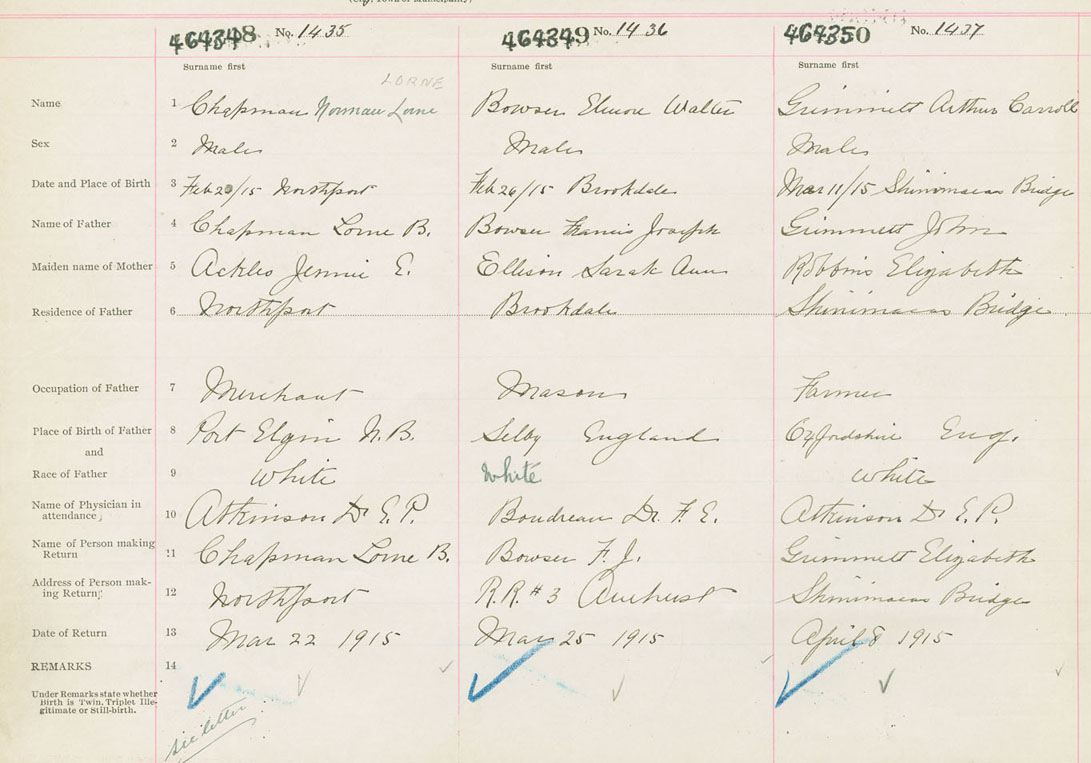 (City, Town or Municipality)
464348 No. 1435 464349 No. 1436 464350 No. 1437
Surname first Surname first Surname first
LORNE
Name 1 Chapman Norman Lorne Bowser Elmore Walter Grimmett Arthur Carroll
Sex 2 Male Male Male
Date and Place of Birth 3 Feb 20/15 Northport Feb 26/15 Brookdale Mar 11/15 Shinimacas Bridge
Name of Father 4 Chapman Lorne B. Bowser Francis Joseph Grimmett John
Maiden name of Mother 5 Ackles Jennie E. Ellison Sarah Ann Robbins Elizabeth
Residence of Father 6 Northport Brookdale Shinimacas Bridge
Occupation of Father 7 Merchant Mason Farmer
Place of Birth of Father 8 Port Elgin N.B. Selby England Oxfordshire Eng.
and
Race of Father 9 White White White
Name of Physician in
attendance 10 Atkinson Dr E. P. Boudreau Dr. F. E. Atkinson Dr E. P.
Name of Person making
Return 11 Chapman Lorne B. Bowser F. J. Grimmett Elizabeth
Address of Person mak-
ing Return 12 Northport R.R. #3 Amherst Shinimacas Bridge
Date of Return 13 Mar 22 1915 Mar 25 1915 April 8 1915
REMARKS 14
Under Remarks state whether
Birth is Twin, Triplet Ille-
gitimate or Still-birth.
see letter